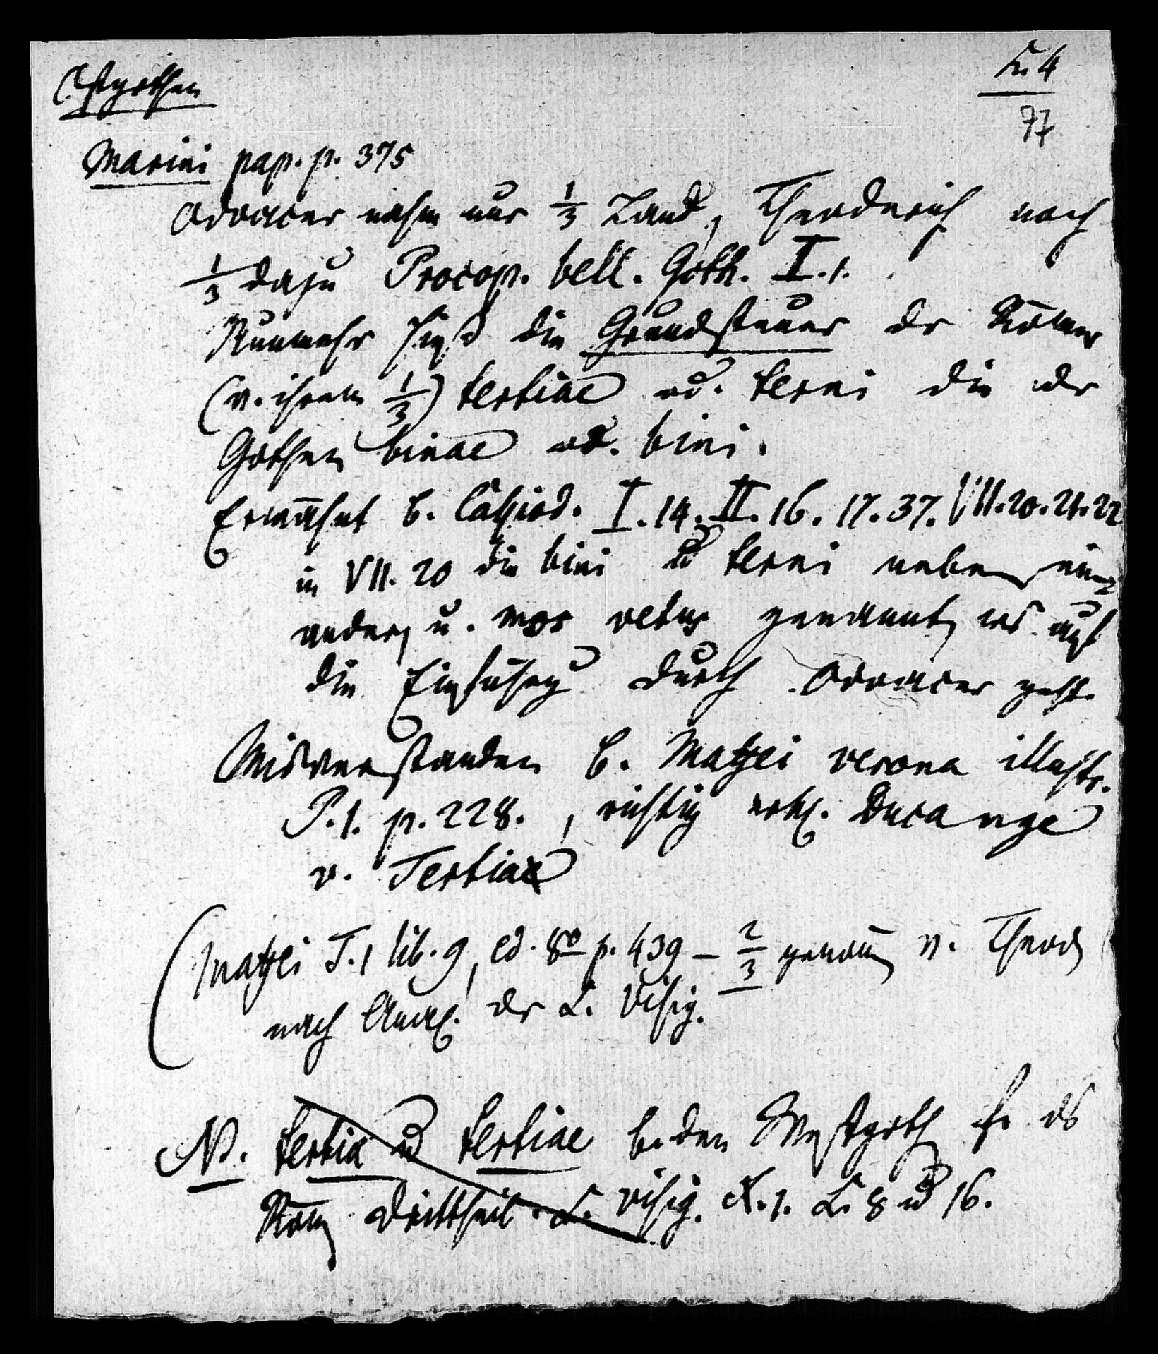 Ostgothen
4
77
Marini pap. p. 375
Odoacer nahm nur 1/3 Land, Theoderich noch
1/3 dazu Procop. bell. Goth. I. 1.
Nunmehr hieß die Grundsteuer dr Römer
(v. ihrem 1/3) tertiae od. terni die der
Gothen binae od. bini.
Erwähnt b. Caßiod. I. 14. II. 16. 17. 37. VII. 20. 21. 22
in VII. 20 die bini u terni neben ein
ander, u. mos vetus genannt, was auf
die Einführg durch Odoacer geht.
Misverstanden b. Maffei verona illustr.
P. 1. p. 228. , richtig erkl. Ducange
v. Tertiae
(Maffei T. 1 lib. 9, ed. 8o p. 439 – 2/3 genom v. Theod
nach Anal. dr L. Visig.
N. tertia ud tertiae bei den Westgoth ds
Röm Drittheil. L. visig. X. 1. L. 8 ud 16.